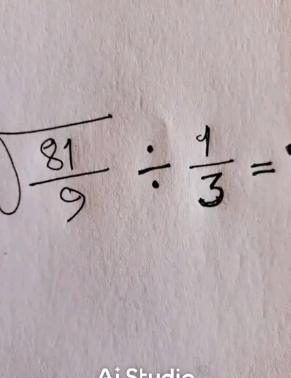 √(81/9) ÷ 1/3 =
Ai Studio